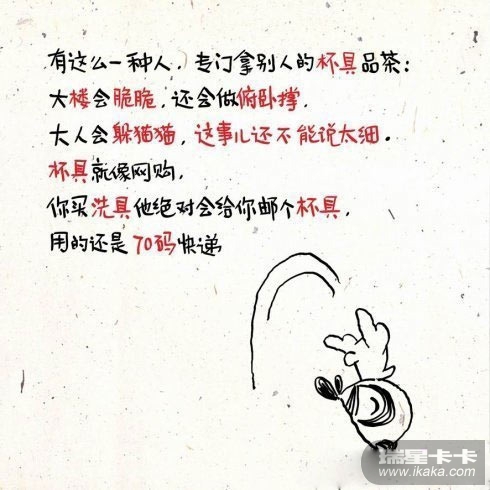 有这么一种人，专门拿别人的杯具品茶：
大楼会脆脆，还会做俯卧撑，
大人会躲猫猫，这事儿还不能说太细．
杯具就像网购，
你买洗具他绝对会给你邮个杯具，
用的还是70码快递
瑞星卡卡
www.ikaka.com